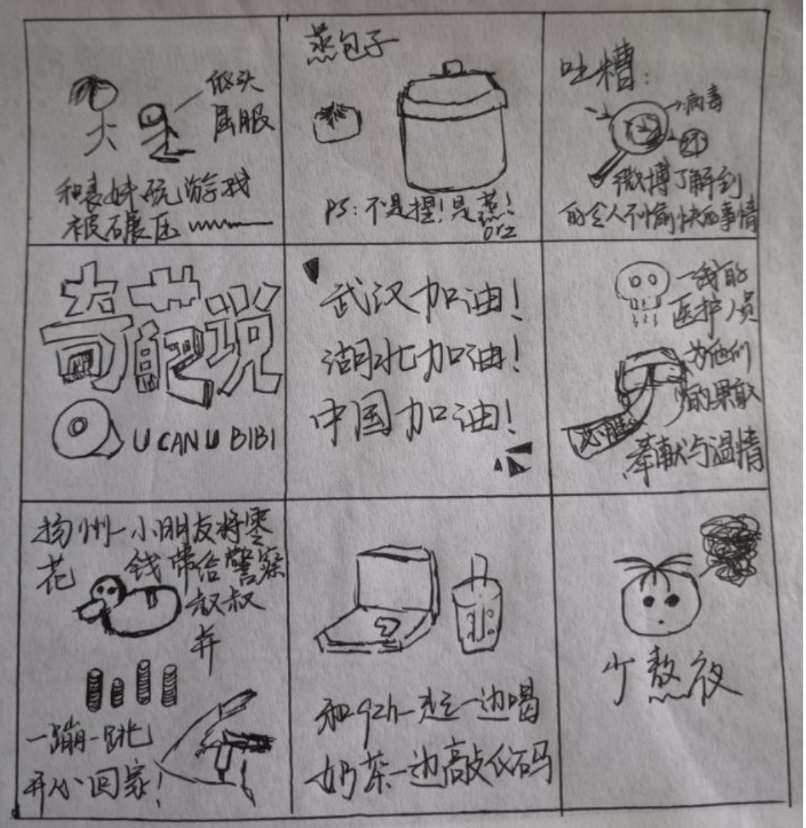 低头
屈服
和表妹玩游戏
被碾压
蒸包子
PS:不是捏!是蒸!
orz
吐槽:
病毒
微博了解到
的令人不愉快的事情
奇葩说
U CAN U BIBI
武汉加油!
湖北加油!
中国加油!
一线的
医护人员
为他们
的果敢
奉献与温情
必胜
扬州一小朋友将零
花 钱带给警察
叔叔
并
一蹦一跳
开心回家!
和qzh一起一边喝
奶茶一边敲代码
少熬夜